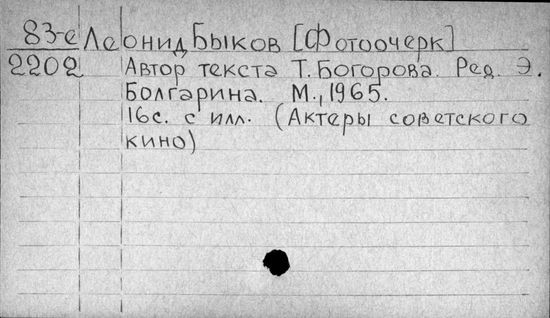 83-е Леонид Быков [Фотоочерк]
2202 Автор текста Т. Богорова. Ред. Э.
Болгарина. М., 1965.
16с. с илл. (Актеры советского
кино)